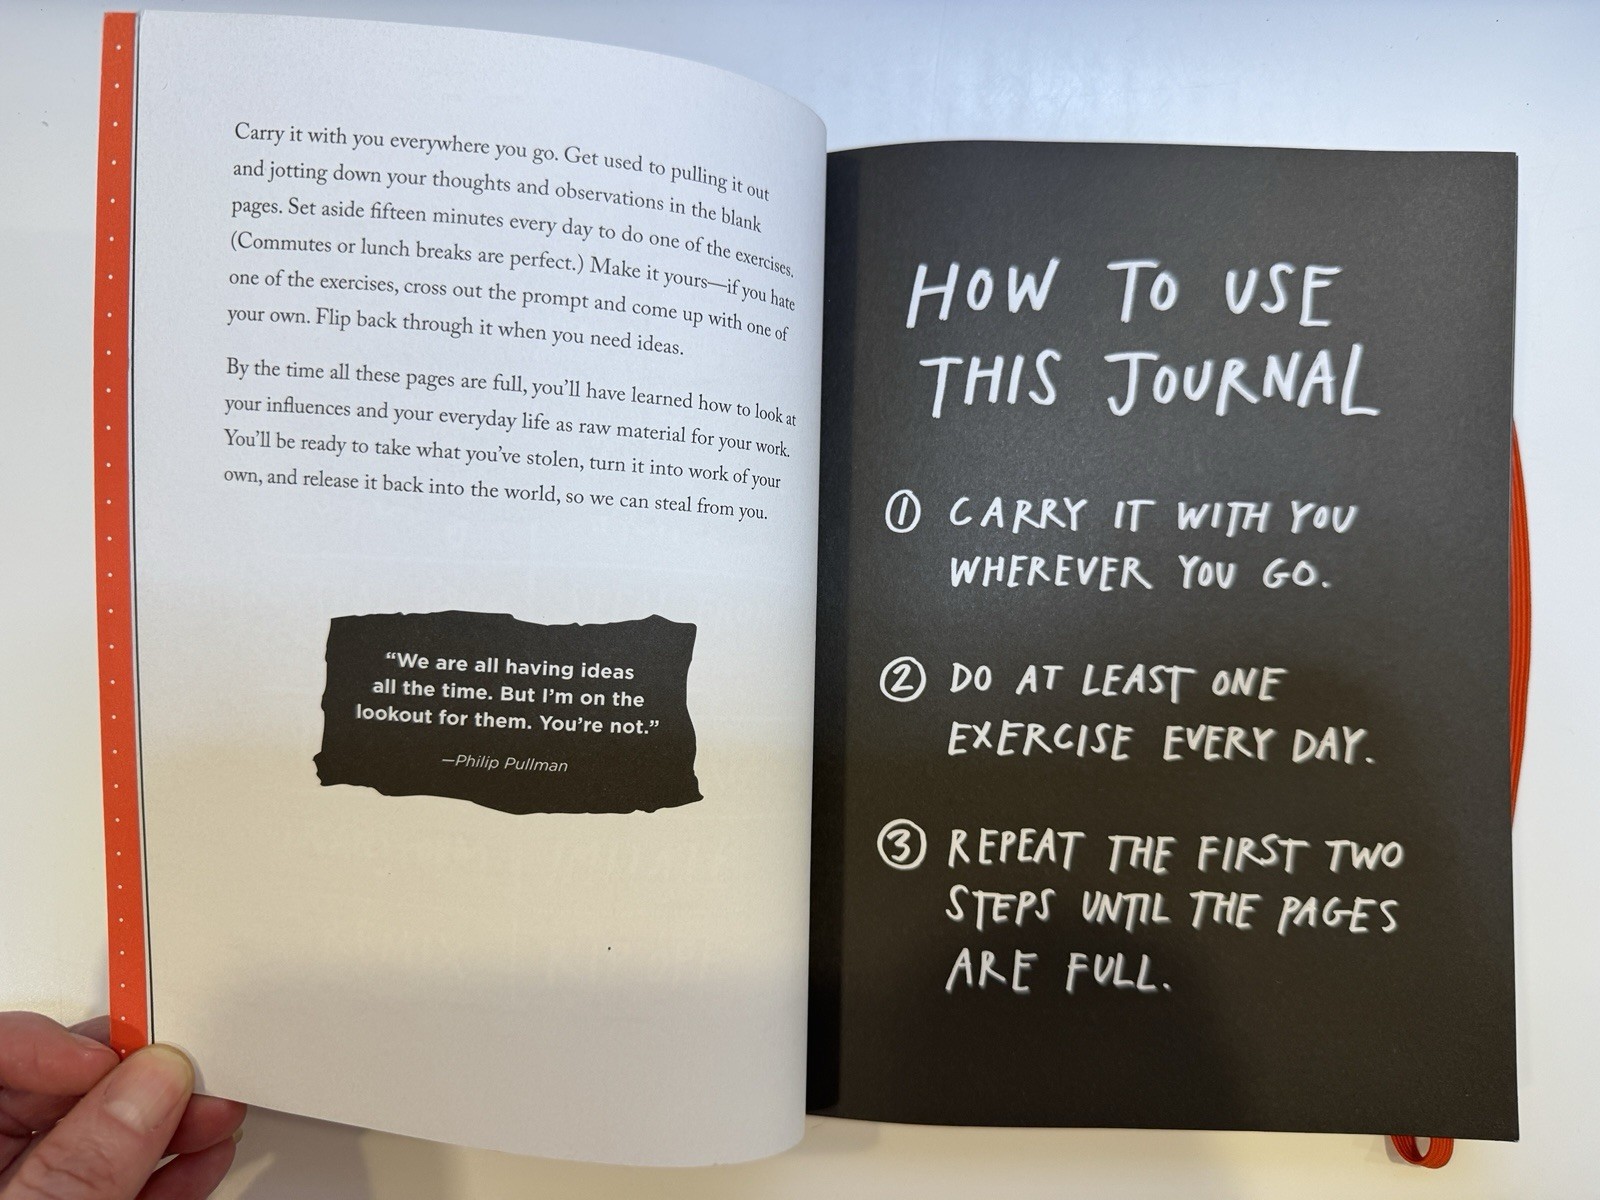 Carry it with you everywhere you go. Get used to pulling it out
and jotting down your thoughts and observations in the blank
pages. Set aside fifteen minutes every day to do one of the exercises.
(Commutes or lunch breaks are perfect.) Make it yours—if you hate
one of the exercises, cross out the prompt and come up with one of
your own. Flip back through it when you need ideas.
By the time all these pages are full, you'll have learned how to look at
your influences and your everyday life as raw material for your work.
You'll be ready to take what you've stolen, turn it into work of your
own, and release it back into the world, so we can steal from you.
“We are all having ideas
all the time. But I'm on the
lookout for them. You're not.”
—Philip Pullman
HOW TO USE
THIS JOURNAL
① CARRY IT WITH YOU
WHEREVER YOU GO.
② DO AT LEAST ONE
EXERCISE EVERY DAY.
③ REPEAT THE FIRST TWO
STEPS UNTIL THE PAGES
ARE FULL.